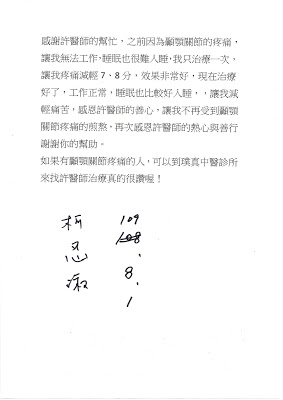 感謝許醫師的幫忙，之前因為顳顎關節的疼痛，
讓我無法工作，睡眠也很難入睡，我只治療一次，
讓我疼痛減輕 7、8 分，效果非常好，現在治療
好了，工作正常，睡眠也比較好入睡，，讓我減
輕痛苦，感恩許醫師的善心，讓我不再受到顳顎
關節疼痛的煎熬，再次感恩許醫師的熱心與善行
謝謝你的幫助。
如果有顳顎關節疼痛的人，可以到璞真中醫診所
來找許醫師治療真的很讚喔！
柯 109
108.
8.
1